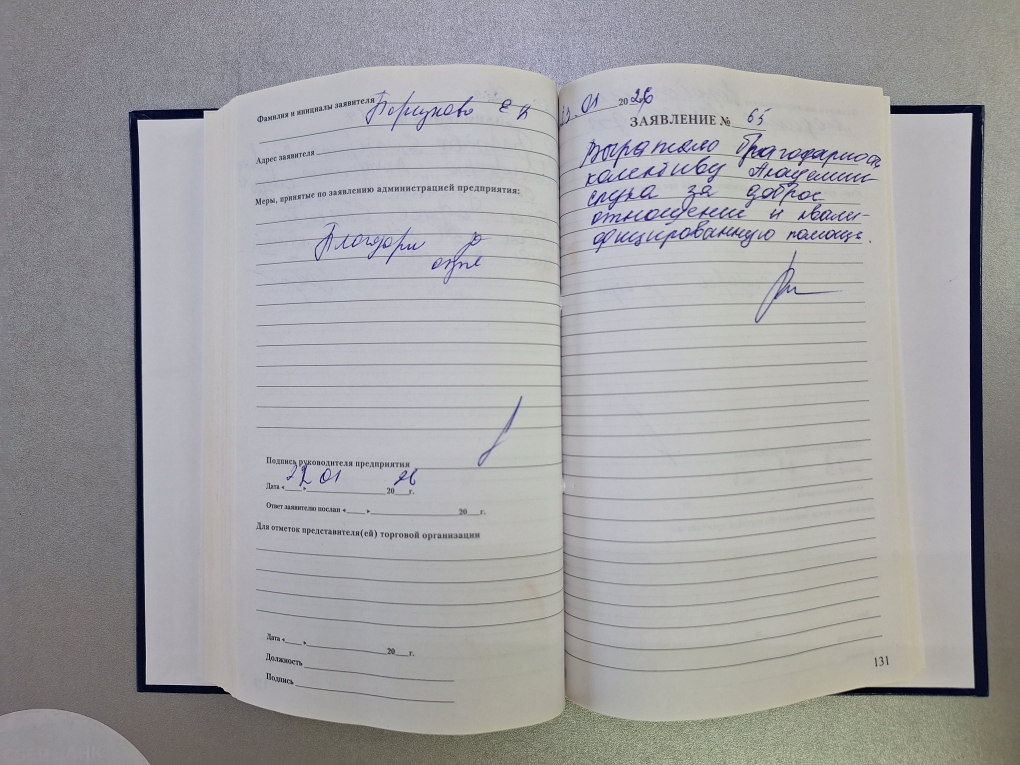 Фамилия и инициалы заявителя
Адрес заявителя
Меры, принятые по заявлению администрацией предприятия:
Благодарим за
Подпись руководителя предприятия
22 01 26
Дата «___»___ 20___г.
Ответ заявителю послан «___»___ 20___г.
Для отметок представителя(ей) торговой организации
Дата «___»___ 20___г.
Должность
Подпись
22.01 2026
ЗАЯВЛЕНИЕ № 65
Выражаю благодарность
колективу Академии
слуха за доброе
отношение и квали-
фицированную помощь.
131